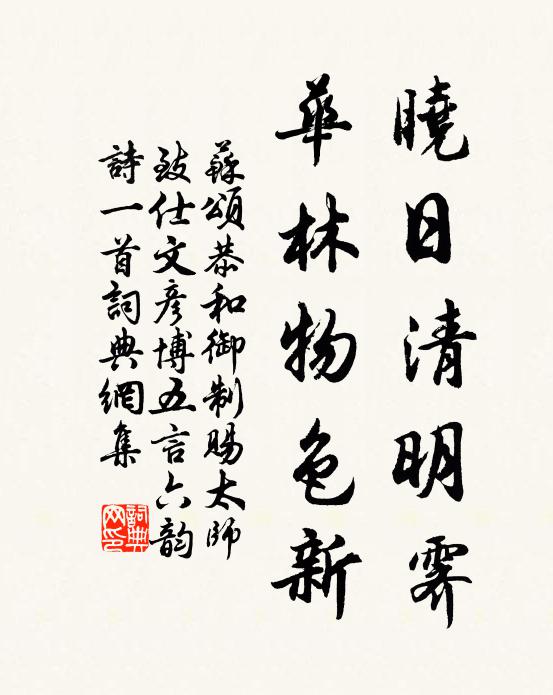 曉日清明霽
華林物色新
蘇頌恭和御制賜太師
致仕文彥博五言六韵
詩一首詞典網集
詞典网印